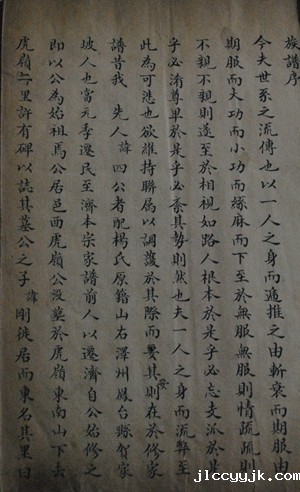 族譜序
今夫世系之流傳也以一人之身而遞推之由斬衰而期服由
期服而大功而小功而緦麻而下至於無服無服則情疏疏則
不親不親則遂至於相視如路人根本於是乎必忘支派於是
乎必淆尊卑於是乎必紊其勢則然也夫一人之身而流弊至
此為可悲也欲維持聯属以調護於其際而其則在於修家
譜昔我 先人 諱 四公者配楊氏原籍山右澤州鳳台縣賀家
坡人也當元季遷民至濟本宗家譜前人以遷濟自公始修之
即以公為始祖焉公居邑西虎嶺公没塟於虎嶺東南山下去
虎嶺里許有碑以誌其墓公之子 諱 剛徙居而東名其里曰
jlccyyjk.com